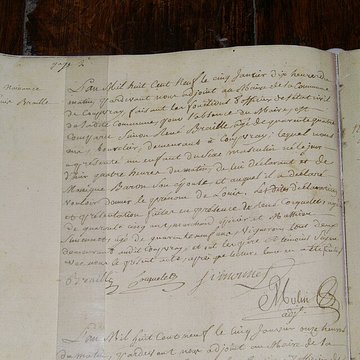 page 2
Naissance
Braille
L'an Mil huit Cent Neuf le cinq Janvier dix heures du
matin, pardevant nous adjoint au Maire de la Commune
de Coupvray, faisant les fonctions d'officier de l'état civil
de ladite Commune, pour l'absence du Maire, est
Comparu Simon René Braille, agé de quarante quatre
ans, bourrelier, demeurant à Coupvray; lequel nous
a présenté un enfant du sexe masculin né le jour
d'hier quatre heures du matin, de lui déclarant et de
Monique Baron son épouse et auquel il a déclaré
vouloir donner le prénom de Louis. Les dites déclaration
et présentation faites en présence de Coquelet agé
de quarante cinq ans, marchand et
Simonet, agé de quarante ans, Vigneron tous deux
demeurant audit Coupvray, et ont les père et témoins signé
avec nous le présent acte, après que lecture leur en a été faite
Braille Coquelet Simonnet
Molin
adj.
L'an Mil huit Cent neuf le cinq Janvier onze heures
du matin, pardevant nous adjoint au Maire de la